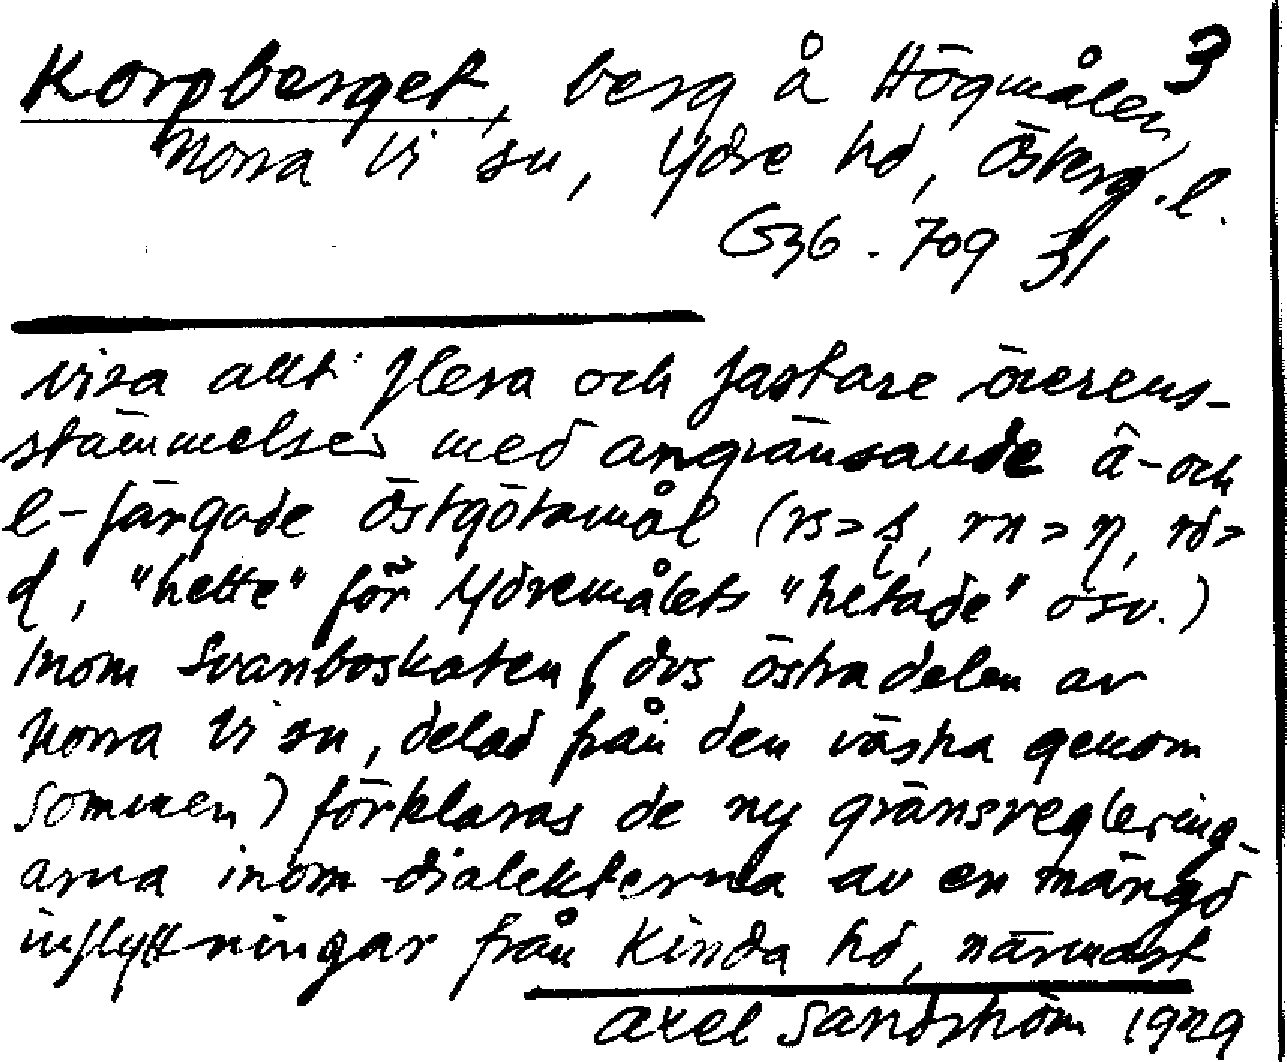 Korpberget, berg å Högmålen 3
Norra Vi sn, Ydre hd, Österg.l.
G36. 709 31
visa allt flera och fastare överens-
stämmelser med angränsande â- och
e-färgade Östgötamål (rs > ʂ, rn > ɳ, rd >
ɖ, "hette" för Ydremålets "hetade" osv.)
Inom Svanboskaten (dvs östra delen av
Norra Vi sn, delad från den västra genom
Sommen) förklaras de ny gränsreglering-
arna inom dialekterna av en mängd
inflyttningar från Kinda hd, närmast
Axel Sandström 1929